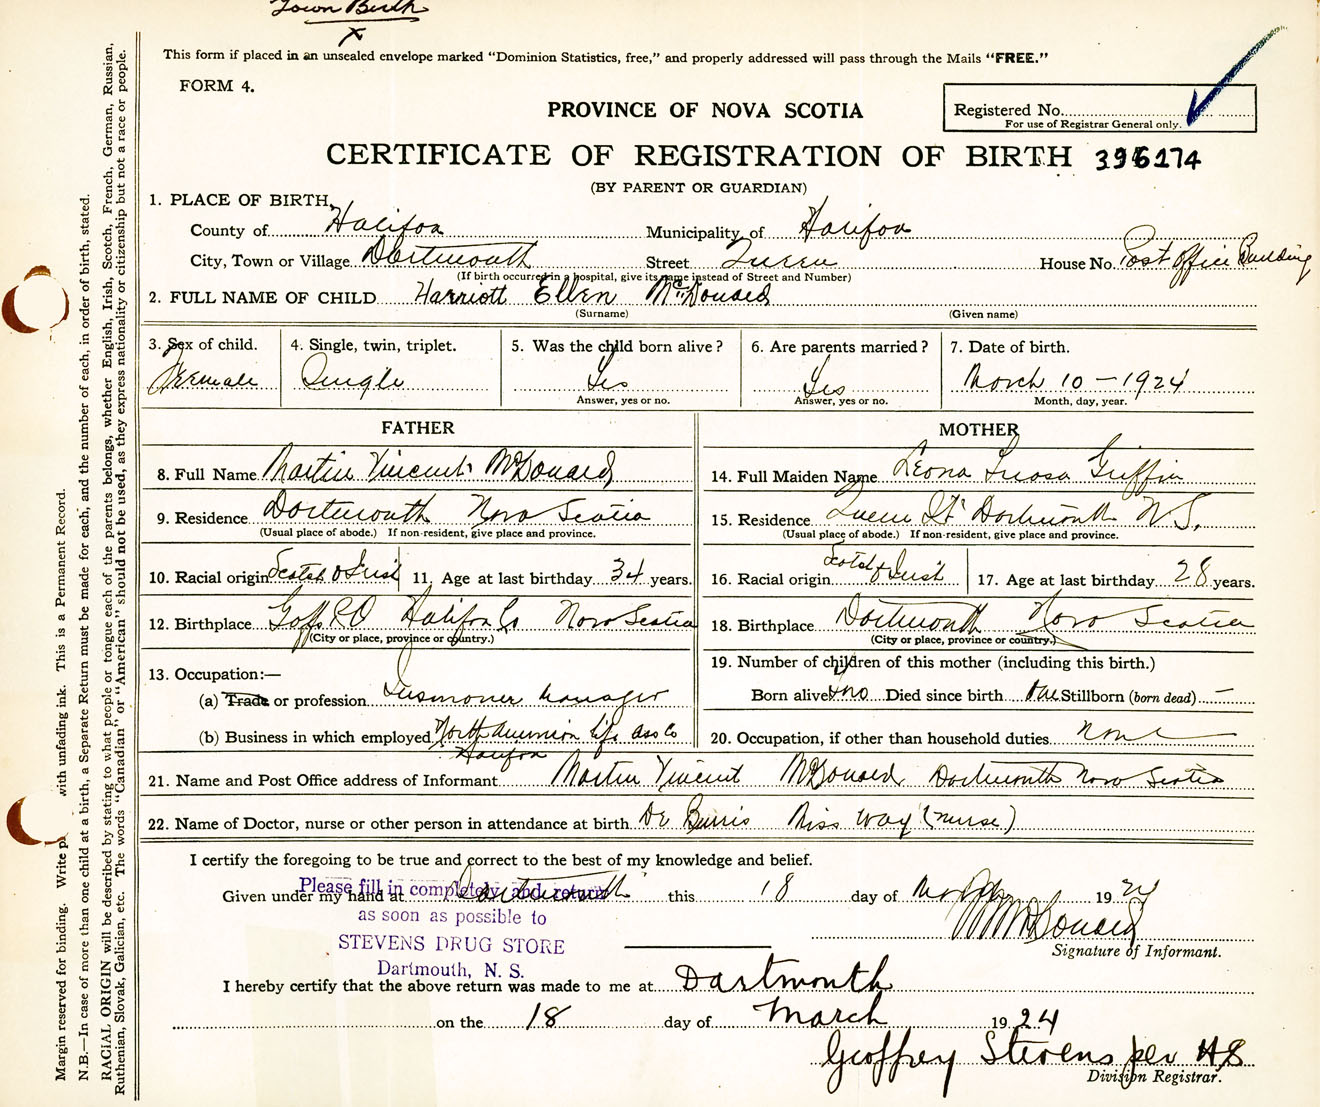 Town Birth
X
This form if placed in an unsealed envelope marked "Dominion Statistics, free," and properly addressed will pass through the Mails "FREE."
FORM 4.
PROVINCE OF NOVA SCOTIA
Registered No.
For use of Registrar General only.
CERTIFICATE OF REGISTRATION OF BIRTH 396174
(BY PARENT OR GUARDIAN)
1. PLACE OF BIRTH,
County of Halifax Municipality of Halifax
City, Town or Village Dartmouth Street Queen House No. Post Office Building
(If birth occurred in a hospital, give its name instead of Street and Number)
2. FULL NAME OF CHILD Harriott Ellen McDonald
(Surname) (Given name)
3. Sex of child. 4. Single, twin, triplet. 5. Was the child born alive? 6. Are parents married? 7. Date of birth.
Female Single Yes Yes March 10 - 1924
Answer, yes or no. Answer, yes or no. Month, day, year.
FATHER MOTHER
8. Full Name Martin Vincent McDonald 14. Full Maiden Name Leona Griffin
9. Residence Dartmouth Nova Scotia 15. Residence Queen St Dartmouth N S.
(Usual place of abode.) If non-resident, give place and province. (Usual place of abode.) If non-resident, give place and province.
10. Racial origin Scotch & Irish 11. Age at last birthday 34 years. 16. Racial origin Scotch & Irish 17. Age at last birthday 28 years.
12. Birthplace Goffs P O Halifax Co Nova Scotia 18. Birthplace Dartmouth Nova Scotia
(City or place, province or country.) (City or place, province or country.)
13. Occupation:— 19. Number of children of this mother (including this birth.)
(a) Trade or profession manager Born alive two Died since birth one Stillborn (born dead) —
(b) Business in which employed North American Life ass Co 20. Occupation, if other than household duties None
Halifax
21. Name and Post Office address of Informant Martin Vincent McDonald Dartmouth Nova Scotia
22. Name of Doctor, nurse or other person in attendance at birth Dr Burris Miss Way (nurse)
I certify the foregoing to be true and correct to the best of my knowledge and belief.
Given under my hand at Dartmouth this 18 day of March 1924
Please fill in completely and return
as soon as possible to
STEVENS DRUG STORE
Dartmouth, N. S.
M V McDonald
Signature of Informant.
I hereby certify that the above return was made to me at Dartmouth
on the 18 day of March 1924
Geoffrey Stevens per HS
Division Registrar.
Margin reserved for binding. Write with unfading ink. This is a Permanent Record.
N.B.—In case of more than one child at a birth, a Separate Return must be made for each, and the number of each, in order of birth, stated.
RACIAL ORIGIN will be described by stating to what people or tongue each of the parents belongs, whether English, Irish, Scotch, French, German, Russian,
Ruthenian, Slovak, Galician, etc. The words "Canadian" or "American" should not be used, as they express nationality or citizenship but not a race or people.